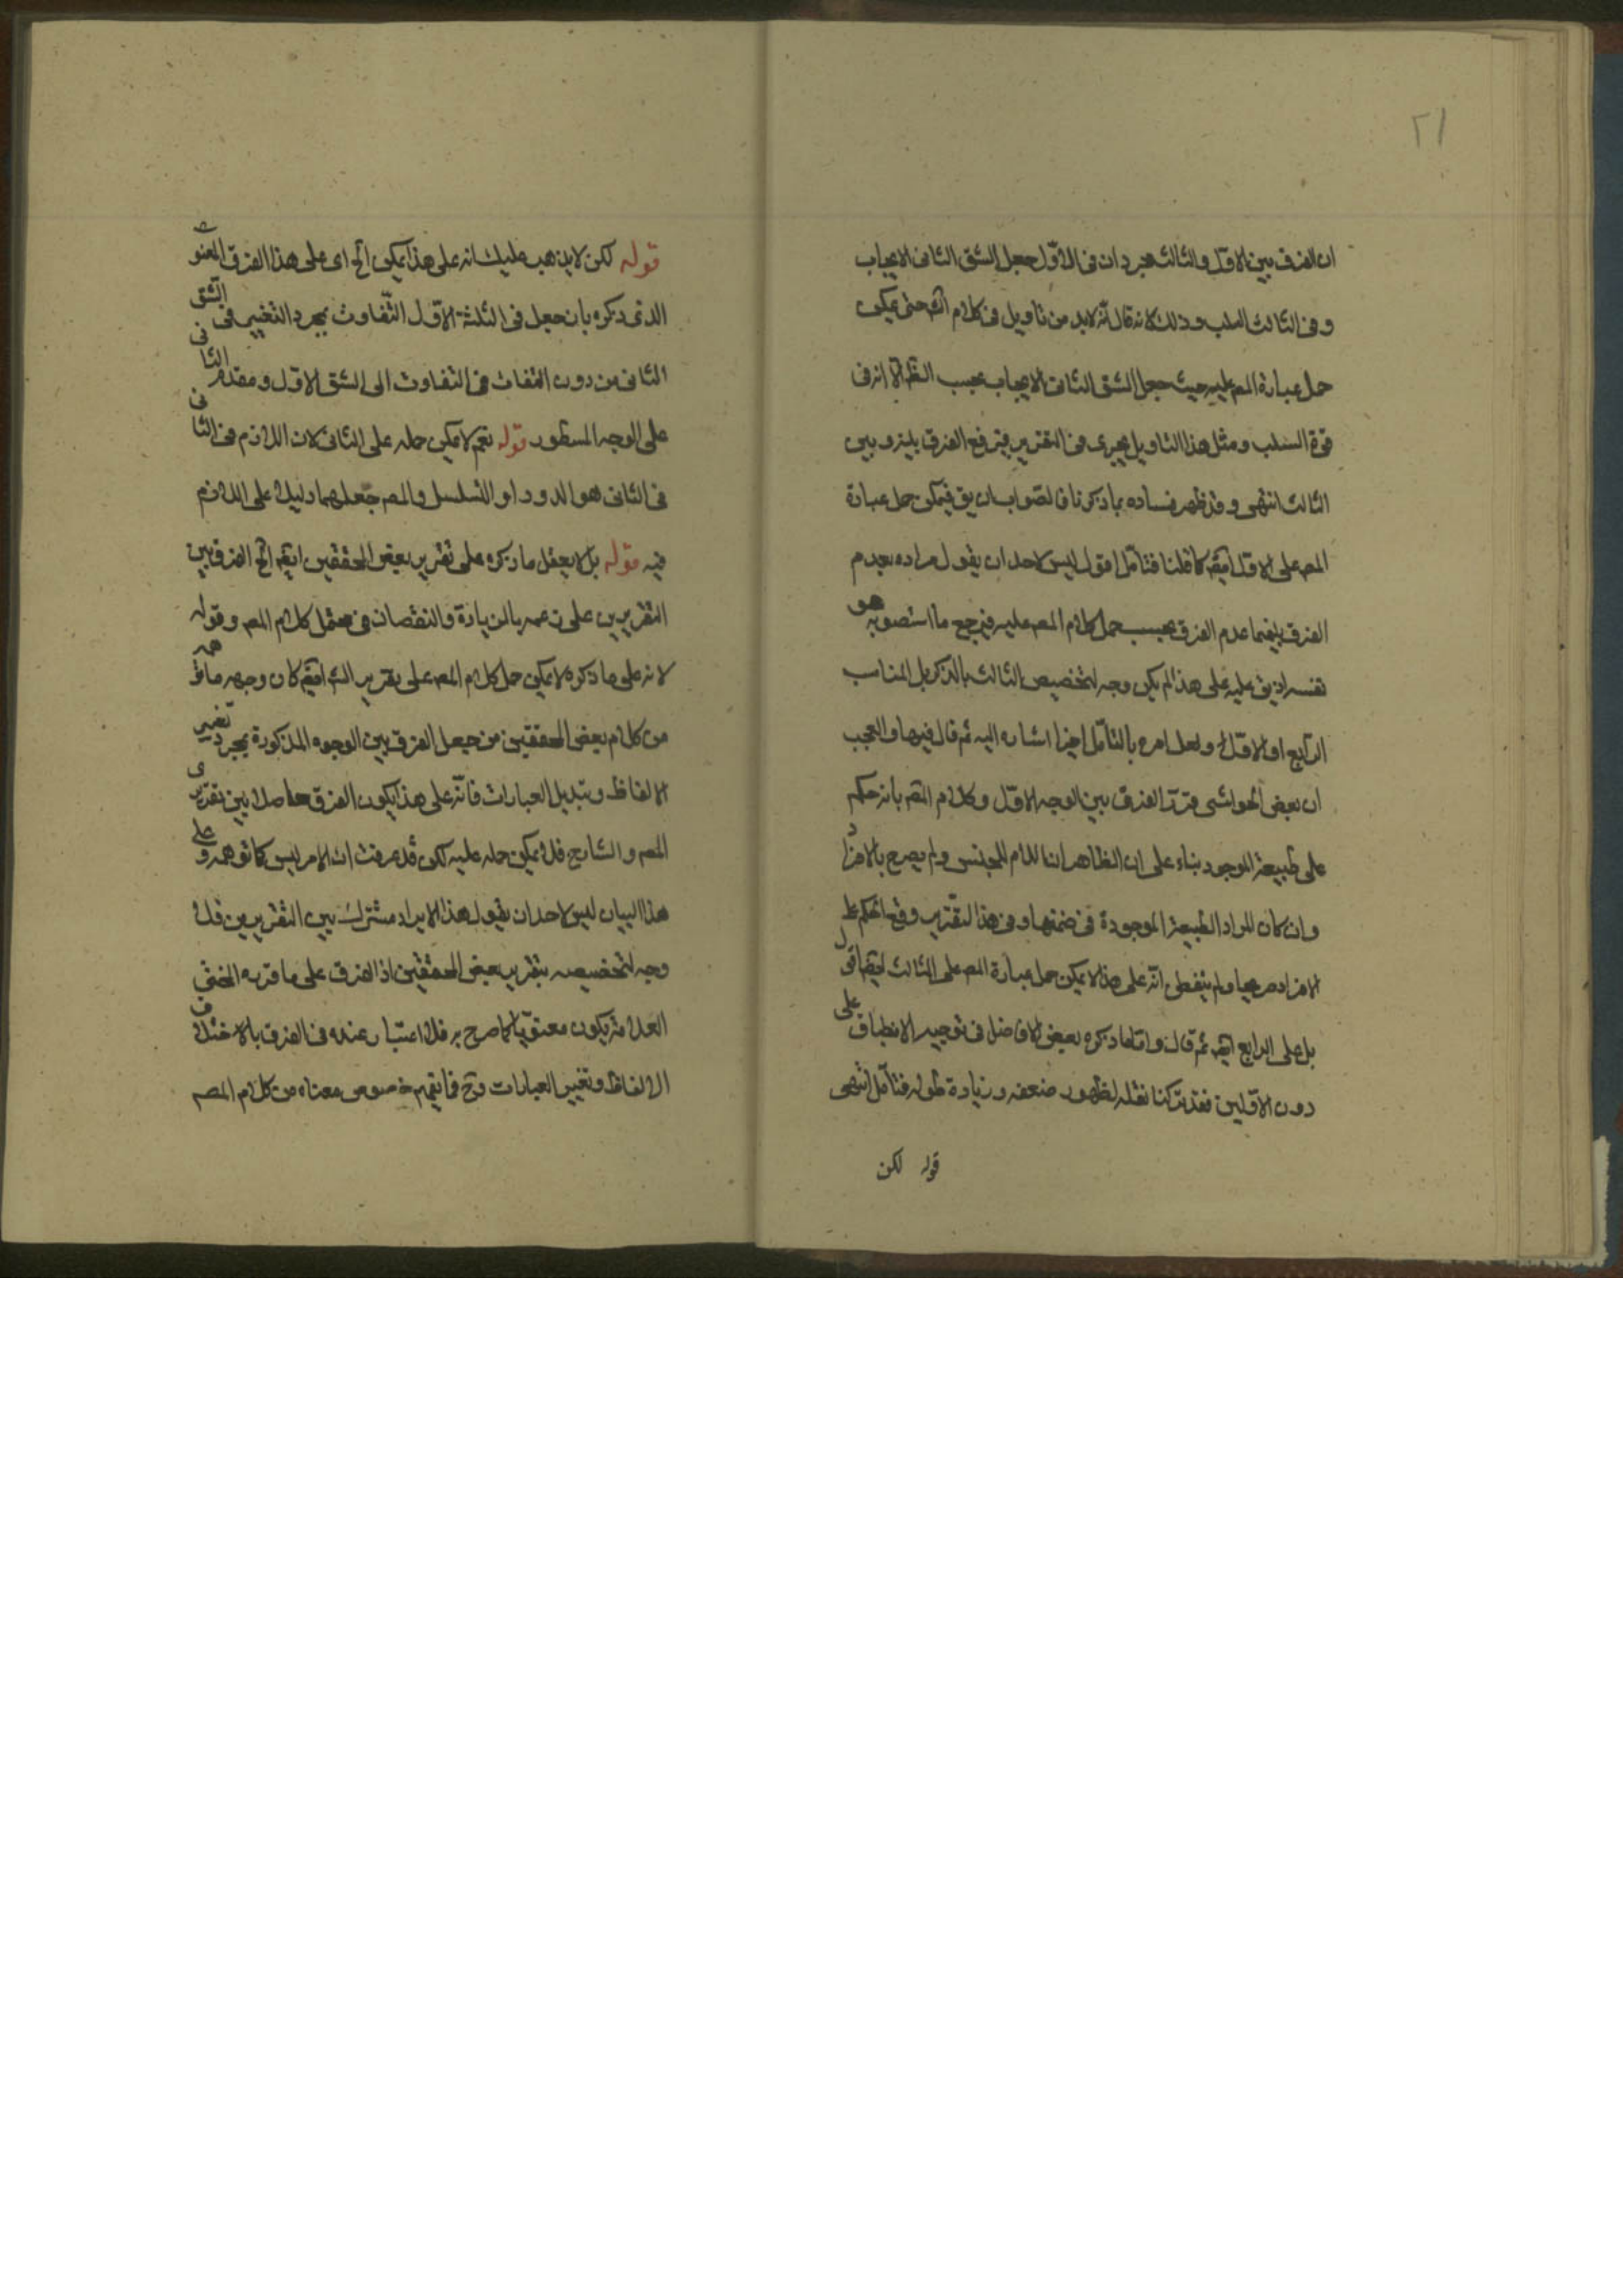 ٢١
ان الفرق بين الاول والثالث مجرد ان فى الاول جعل الشق الثانى الايجاب
وفى الثالث السلب وذلك لانه قال انه لابد من تاويل فى كلام الشه حتى يمكن
حمل عبارة المصه عليه حيث جعل الشق الثانى الايجاب بحسب الظه الا انه فى
قوة السلب ومثل هذا التاويل يجرى فى التقرير فيرفع الفرق بينه وبين
الثالث انتهى وقد ظهر فساده بما ذكرنا فالصواب ان يق فيمكن حمل عبارة
المصه على الاول ايضه كما قلنا فتامل اقول ليس لاحد ان يقول مراده بعدم
الفرق بينهما عدم الفرق بحسب حمل كلام المصه عليه فيرجع ما استصوبه هو
نفسه اذ يق عليه على هذا لم يكن وجه لتخصيص الثالث بالذكر بل المناسب
الرابع او الاول ولعل امره بالتامل اخرا اشاره اليه ثم قال فيها والعجب
ان بعض الحواشى قرر الفرق بين الوجه الاول وكلام المصه بانه حكم
على طبيعة الموجود بناء على ان الظاهر ان اللام للجنس ولم يصرح بالافراد
وان كان المراد الطبيعة الموجودة فى ضمنها وفى هذا التقرير وقع الحكم على
الافراد صريحا ولم يتفطن انه على هذا لا يمكن حمل عبارة المصه على الثالث ايضه اقول
بل على الرابع ايضه ثم قال واما ما ذكره بعض الافاضل فى توجيه الانطباق على
دون الاولين فقد تركنا نقله لظهور ضعفه وزيادة طوله فتامل انتهى
قوله لكن
قوله لكن لا يذهب عليك انه على هذا يمكن الخ اى على هذا الفرق المعنوى
الذى ذكره بان جعل فى الثلثة الاول التفاوت بمجرد التغيير فى الشق
الثانى من دون التفات فى التفاوت الى الشق الاول ومقدم الثانى
على الوجه المسطور قوله نعم لا يمكن حمله على الثانى لان اللازم فى الثانى
فى الثانى هو الدور او التسلسل والمصه جعلهما دليلا على اللازم
فيه قوله بل لا يعقل ما ذكره على تقرير بعض المحققين ايضه الخ الفرق بين
التقريرين على زعمه بالزيادة والنقصان فى محتمل كلام المصه وقوله
لانه على ما ذكره لا يمكن حمل كلام المصه على تقرير الشه ايضه كان وجهه ما توهمه
من كلام بعض المحققين من جعل الفرق بين الوجوه المذكورة بمجرد تغيير
الالفاظ وتبديل العبارات فانه على هذا يكون الفرق حاصلا بين تقريرى
المصه والشارح فلا يمكن حمله عليه لكن قد عرفت ان الامر ليس كما توهمه وعلى
هذا البيان ليس لاحد ان يقول هذا الايراد مشترك بين التقريرين فلا
وجه لتخصيصه بتقرير بعض المحققين اذ الفرق على ما قربه المحشى
العلامة يكون معنويا كما صرح به فلا اعتبار عنده فى الفرق بالاختلاف
الالفاظ وتغيير العبارات وح فما يفهم خصوص معناه من كلام المصه